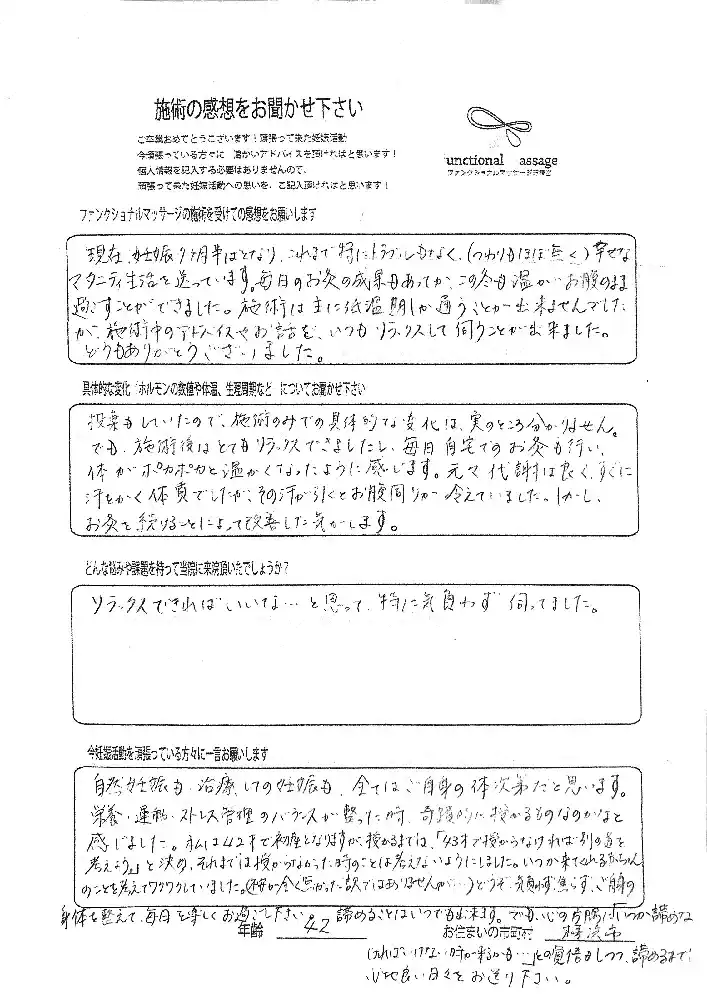 施術の感想をお聞かせ下さい
ご卒業おめでとうございます！頑張って来た妊娠活動
今頑張っている方々に 温かいアドバイスを頂ければと思います！
個人情報を記入する必要はありませんので、
頑張って来た妊娠活動への思いを、ご記入頂ければと思います！
unctional assage
ファンクショナルマッサージ治療室
ファンクショナルマッサージの施術を受けての感想をお願いします
現在、妊娠9ヶ月半ばとなり、これまで特にトラブルもなく、(つわりもほぼ無く)幸せな
マタニティ生活を送っています。毎日のお灸の成果もあってか、この冬も温かいお腹のまま
過ごすことができました。施術は主に低温期しか通うことが出来ませんでした
が、施術中のアドバイスやお話を、いつもリラックスして伺うことが出来ました。
どうもありがとうございました。
具体的な変化 ホルモンの数値や体温、生理周期など についてお聞かせ下さい
投薬もしていたので、施術のみでの具体的な変化は、実のところ分かりません。
でも、施術後はとてもリラックスできましたし、毎日自宅でのお灸も行い、
体がポカポカと温かくなったように感じます。元々代謝は良く、すぐに
汗をかく体質でしたが、その汗が引くとお腹周りが冷えていました。しかし、
お灸を続けることによって改善した気がします。
どんな悩みや課題を持って当院に来院頂いたでしょうか？
リラックスできればいいな…と思って、特に気負わず伺ってました。
今妊娠活動を頑張っている方々に一言お願いします
自然妊娠も、治療しての妊娠も、全てはご自身の体次第だと思います。
栄養・運動・ストレス管理のバランスが整った時、奇蹟的に授かるものなのかなと
感じました。私は42才で初産となりますが、授かるまでは、「43才で授からなければ別の道を
考えよう」と決め、それまでは授からなかった時のことは考えないようにしました。いつか来てくれる赤ちゃん
のことを考えてワクワクしていました。(何かが全く怖かった訳ではありませんが…)どうぞ、気負わず、焦らず、ご自身の
身体を整えて、毎日を楽しくお過ごし下さい。諦めることはいつでも出来ます。でも、心の片隅に「いつか諦めな
年齢 42 お住まいの市町村 横浜市
ければいけない時が来るかも…」との覚悟もしつつ、諦めるまで
心地良い日々をお送り下さい。